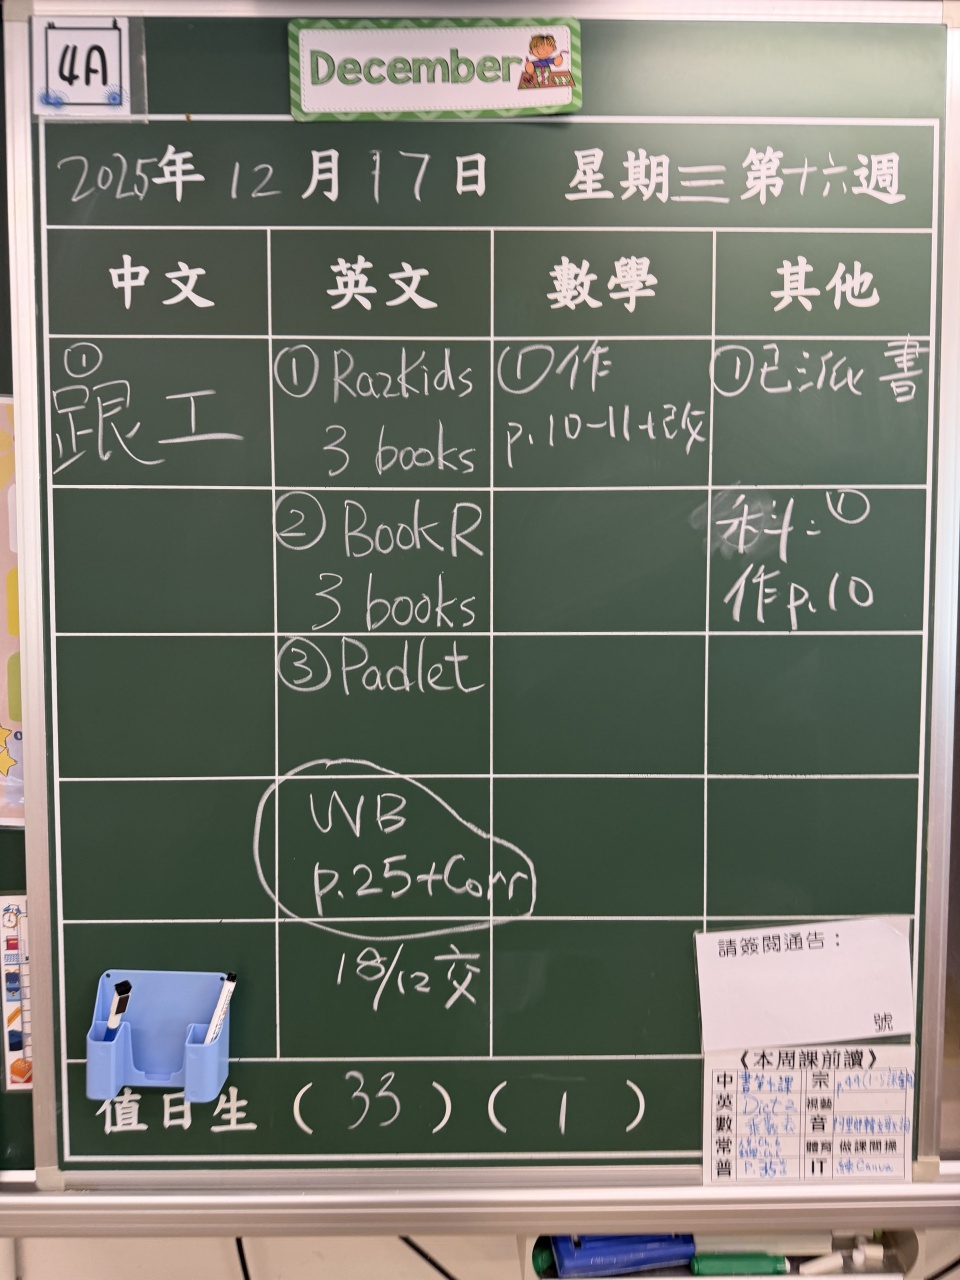 4A
December
2025年 12月 17日 星期三 第十六週
中文 英文 數學 其他
①
跟工
① RazKids
3 books
② BookR
3 books
③ Padlet
WB
p.25+Corr
18/12 交
① 作
p.10-11+改
① 已派書
科: ①
作p.10
請簽閱通告：
號
值日生 ( 33 ) ( 1 )
《本周課前讀》
中
英 Dict 2
數
常
普 p.35
宗
視藝
音
體育 做課間操
IT 練Canva